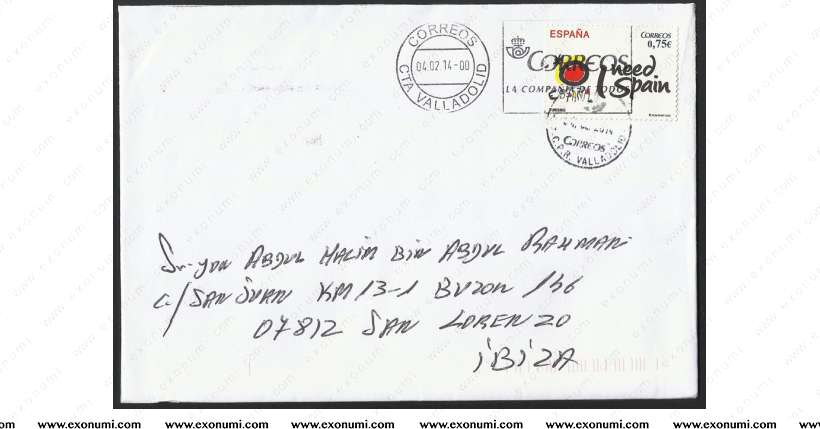 CORREOS
04.02 14-00
CTA VALLADOLID
ESPAÑA
CORREOS
LA COMPAÑIA DE TODOS
CORREOS
0,75€
I need
Spain
CORREOS
C.P.R. VALLADOLID
ABDUL HALIM BIN ABDUL RAHMAN
C/ SAN JUAN KM 13-1 BUZON 136
07812 SAN LORENZO
iBiZA
www.exonumi.com www.exonumi.com www.exonumi.com www.exonumi.com www.exonumi.com www.exonumi.com